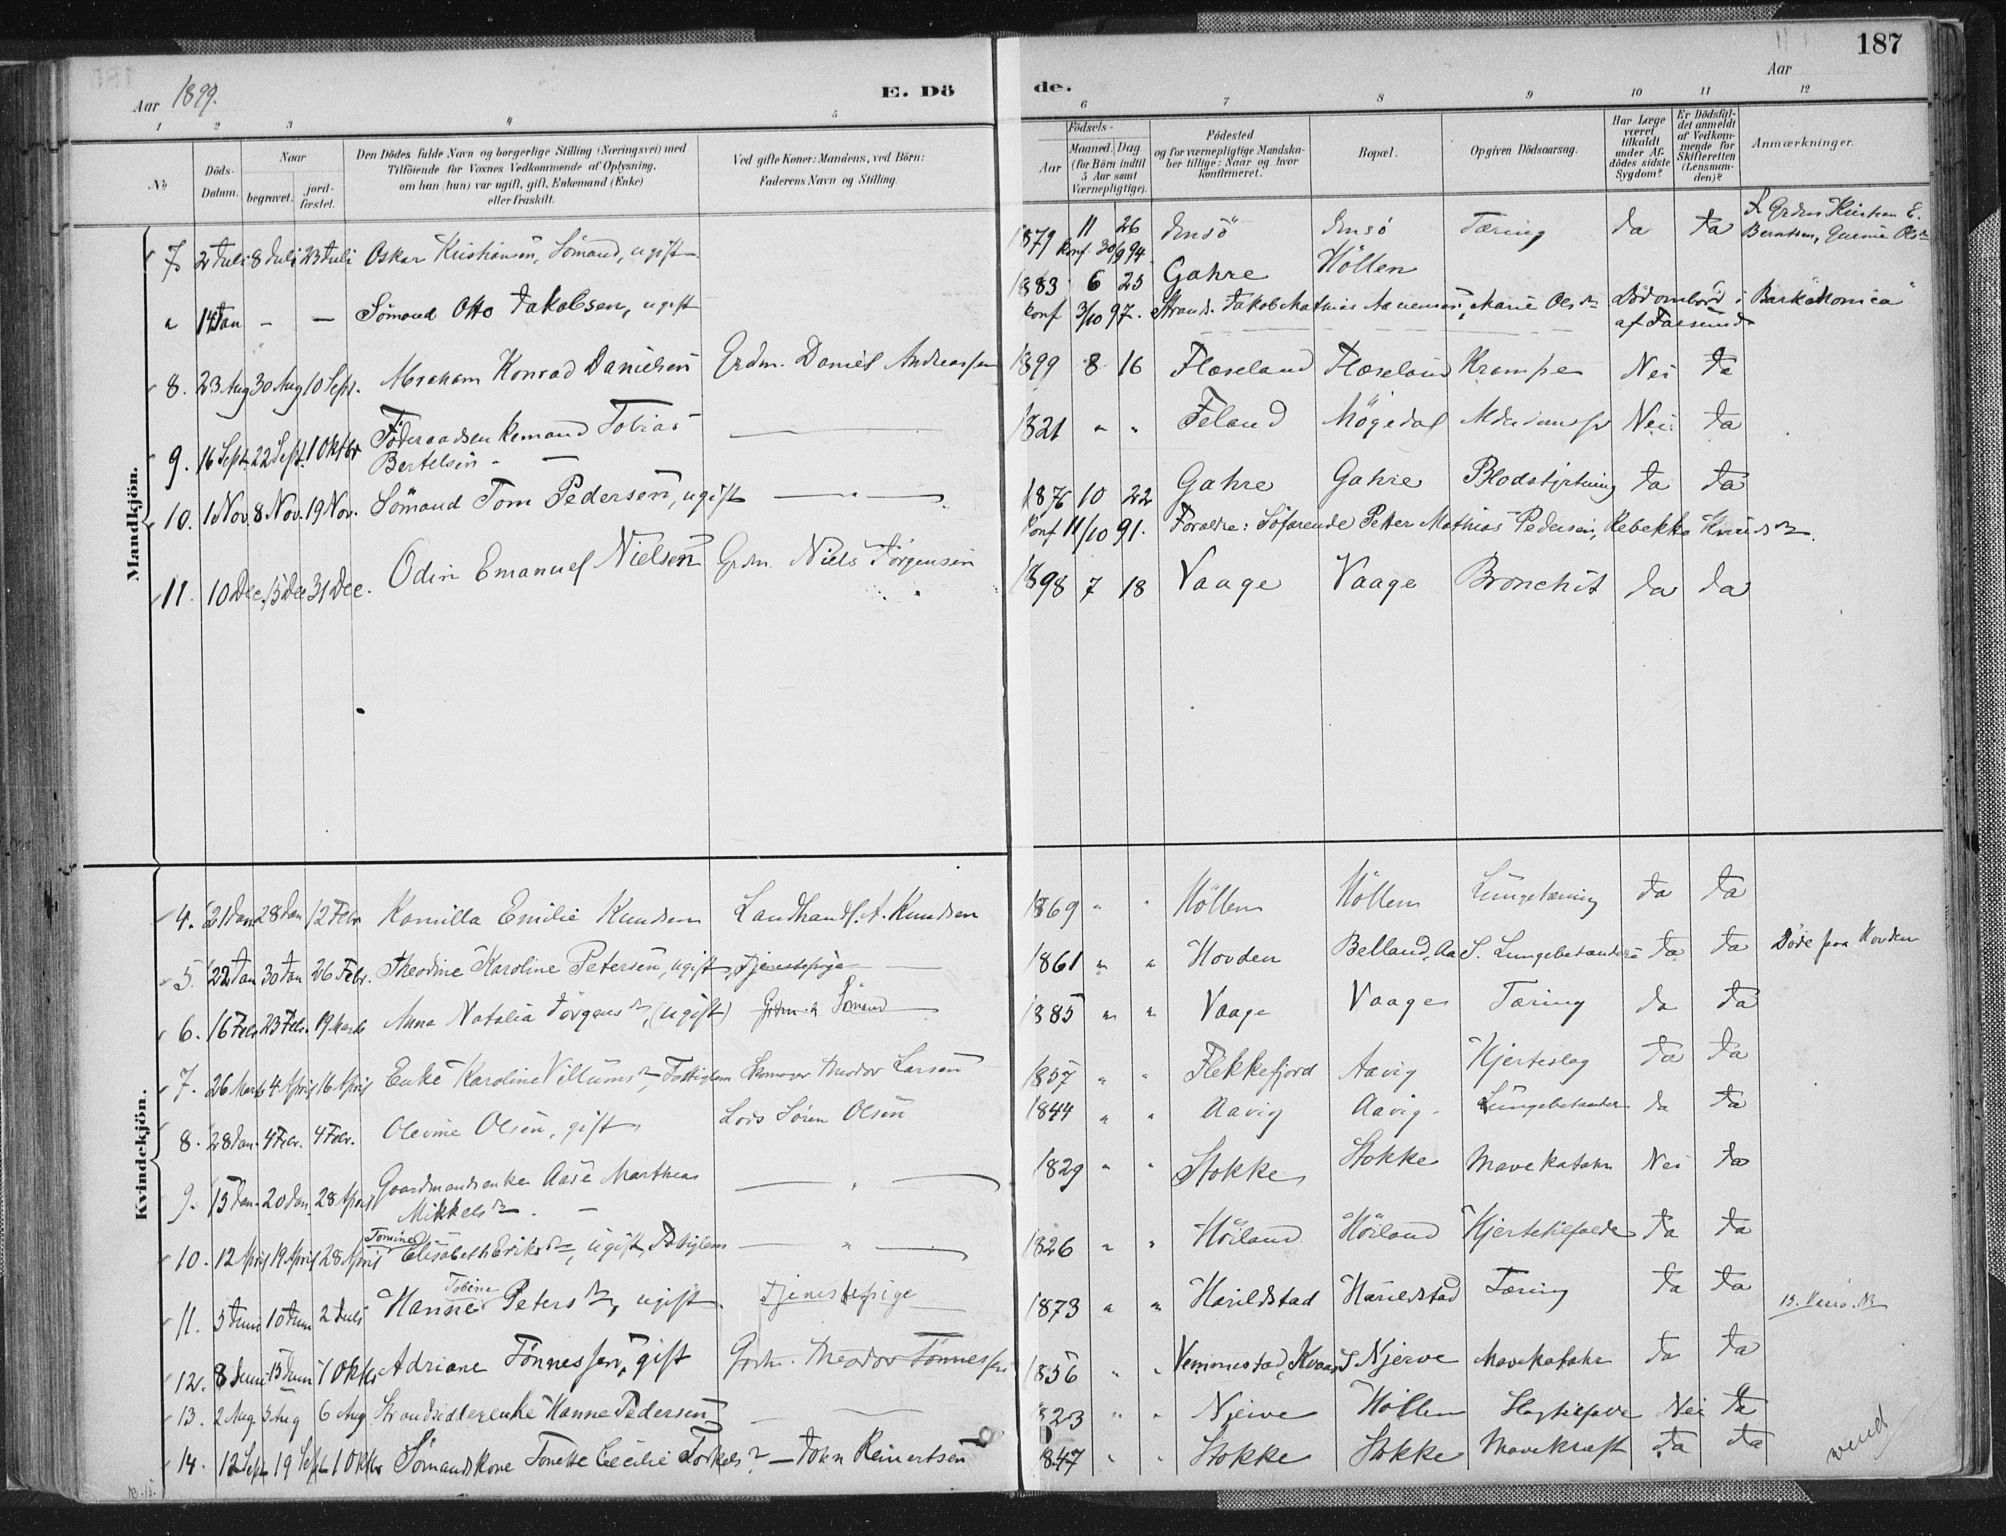 187
Aar 1899.
E. Dö
de.
Aar
1 2 3 4 5 6 7 8 9 10 11 12
No
Döds-Datum.
Naar
begravet.
jord-fæstet.
Den Dödes fulde Navn og borgerlige Stilling (Næringsvei) med
Tilföiende for Voxnes Vedkommende af Oplysning,
om han (hun) var ugift, gift, Enkemand (Enke)
eller fraskilt.
Ved gifte Koner: Mandens, ved Börn:
Faderens Navn og Stilling.
Födsels-
Aar
Maaned. Dag
(for Börn indtil
5 Aar samt
Værnepligtige).
Födested
og for værnepligtige Mandska-
ber tillige: Naar og hvor
konfirmeret.
Bopæl.
Opgiven Dödsaarsag.
Har Læge
været
tilkaldt
under Af-
dödes sidste
Sygdom?
Er Dödsfal-
det anmeldt
af Vedkom-
mende for
Skifteretten
(Lensman-
den)?
Anmærkninger.
Mandkjön.
7 2 Juli 8 Juli 23 Juli Oskar Kristiansen, Sömand, ugift 1879 11 26 Imsö Imsö Tæring Ja Ja
Konf. 30/9 94.
" 14 Jan - - Sömand Otto Jakobsen, ugift 1883 6 25 Gahre Höllen
Konf 3/10 97. Strands. Jakob Mathias Aanensen, Marie Olsdr Död ombord i Bark "Monica"
af Farsund
8. 23 Aug 30 Aug 10 Sept. Abraham Konrad Danielsen Grdm. Daniel Andreassen 1899 8 16 Floeseland Floeseland Krampe Nei Ja
9. 16 Sept. 22 Sept. 1 Oktbr Föderaadsenkemand Tobias
Bertelsen - 1821 " " Feland Högedal Nei Ja
10. 1 Nov. 8. Nov. 19 Nov. Sömand Tom Pedersen, ugift 1876 10 22 Gahre Gahre Blodstyrtning Ja Ja
Konf 11/10 91. Forældre: Söfarende Petter Mathias Pedersen, Rebekka Knudsdr.
11. 10 Dec. 15 Dec 31 Dec. Odin Emanuel Nielsen Grdm. Niels Jörgensen 1898 7 18 Vaage Vaage Bronchit Ja Ja
Kvindekjön.
4. 21 Jan 28 Jan 12 Febr Kamilla Emilie Knudsen Landhandl. A. Knudsen 1869 " " Höllen Höllen Lungetæring Ja Ja
5. 22 Jan 30 Jan 26 Febr. Theodine Karoline Petersen, ugift, Tjenestepige 1861 " " Hovden Belland, Aa S. Lungebetændelse Ja Ja Döde paa Hovden
6. 16 Febr 23 Febr. 19 Marts Anna Natalia Jörgensdr, (ugift) Sömand 1885 " " Vaage Vaage Tæring Ja Ja
7. 26 Marts 4 April 16 April Enke Karoline Villumsdr, Fattiglem Skomager Theodor Larsen 1857 " " Flekkefjord Aavig Hjerteslag Ja Ja
8. 28 Jan. 4 Febr. 4 Febr. Olevine Olsen, gift Lods Sören Olsen 1844 " " Aavig Aavig Lungebetændelse Ja Ja
9. 15 Jan. 20 Jan. 28 April Gaardmandsenke Aase Marthea
Mikkelsdr. - 1829 " " Stokke Stokke Mavekatahr Nei Ja
10. 12 April 19 April 28 April Tomine Elisabeth Eriksdr, ugift, Fattiglem 1826 " " Höiland Höiland Hjertetilfælde Ja Ja
11. 5 Juni 10 Juni 2 Juli Hanne Tobine Petersdr, ugift Tjenestepige 1873 " " Harildstad Harildstad Tæring Ja Ja
12. 8 Juni 15 Juni 1 Oktbr Adriane Tönnessen, gift Grdm. Theodor Tönnessen 1856 " " Vemmestad, Kvaas S Njerve Mavekatahr Ja Ja
13. 2 Aug. 5 Aug 6 Aug Strandsidderenke Hanne Pedersen 1823 " " Njerve Höllen Slagtilfælde Nei Ja
14. 12 Sept 19 Sept 1 Oktbr Sömandskone Tonette Cecilie Torkelsdr - John Reinertsen 1847 " " Stokke Stokke Mavekræft Ja Ja
vend